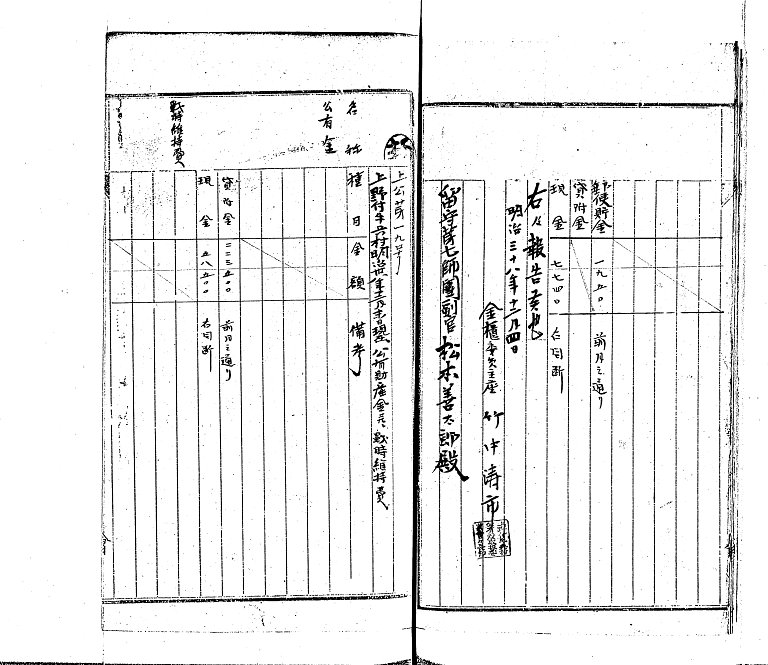 郵便貯金 一九五〇 前月之通リ
貸附金
現金 七七四〇 右同断
右及報告候也
明治三十八年十二月四日
金櫃委員主座 竹中清市
留守第七師團副官 松木善太郎殿
上公第一九号
上野付牛兵村明治 年十二月 日現 公有動産金 戦時維持費
名称 種目 金額 備考
公有金
貸附金 二二三五〇〇 前月之通リ
現金 五八五〇〇 右同断
戦時維持費